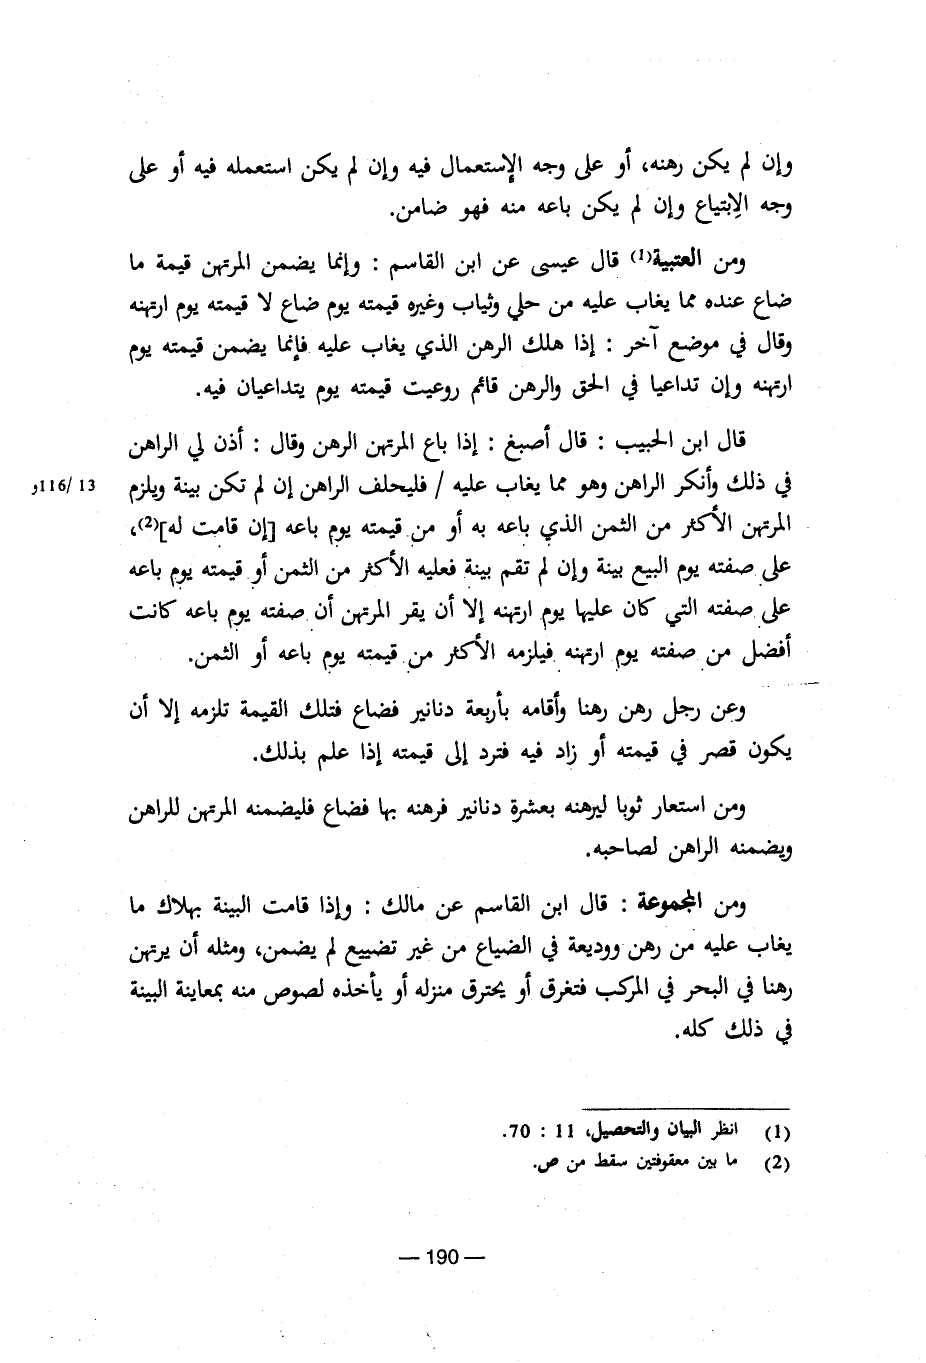 وإن لم يكن رهنه، أو على وجه الإستعمال فيه وإن لم يكن استعمله فيه أو على
وجه الاِبتياع وإن لم يكن باعه منه فهو ضامن.
ومن العتبية(1) قال عيسى عن ابن القاسم : وإنما يضمن المرتهن قيمة ما
ضاع عنده مما يغاب عليه من حلي وثياب وغيره قيمته يوم ضاع لا قيمته يوم ارتهنه
وقال في موضع آخر : إذا هلك الرهن الذي يغاب عليه فإنما يضمن قيمته يوم
ارتهنه وإن تداعيا في الحق والرهن قائم روعيت قيمته يوم يتداعيان فيه.
قال ابن الحبيب : قال أصبغ : إذا باع المرتهن الرهن وقال : أذن لي الراهن
في ذلك وأنكر الراهن وهو مما يغاب عليه / فليحلف الراهن إن لم تكن بينة ويلزم
13 /116و
المرتهن الأكثر من الثمن الذي باعه به أو من قيمته يوم باعه [إن قامت له](2)،
على صفته يوم البيع بينة وإن لم تقم بينة فعليه الأكثر من الثمن أو قيمته يوم باعه
على صفته التي كان عليها يوم ارتهنه إلا أن يقر المرتهن أن صفته يوم باعه كانت
أفضل من صفته يوم ارتهنه فيلزمه الأكثر من قيمته يوم باعه أو الثمن.
وعن رجل رهن رهنا وأقامه بأربعة دنانير فضاع فتلك القيمة تلزمه إلا أن
يكون قصر في قيمته أو زاد فيه فترد إلى قيمته إذا علم بذلك.
ومن استعار ثوبا ليرهنه بعشرة دنانير فرهنه بها فضاع فليضمنه المرتهن للراهن
ويضمنه الراهن لصاحبه.
ومن المجموعة : قال ابن القاسم عن مالك : وإذا قامت البينة بهلاك ما
يغاب عليه من رهن ووديعة في الضياع من غير تضييع لم يضمن، ومثله أن يرتهن
رهنا في البحر في المركب فتغرق أو يحترق منزله أو يأخذه لصوص منه بمعاينة البينة
في ذلك كله.
(1) انظر البيان والتحصيل، 11 : 70.
(2) ما بين معقوفتين سقط من ص.
— 190 —